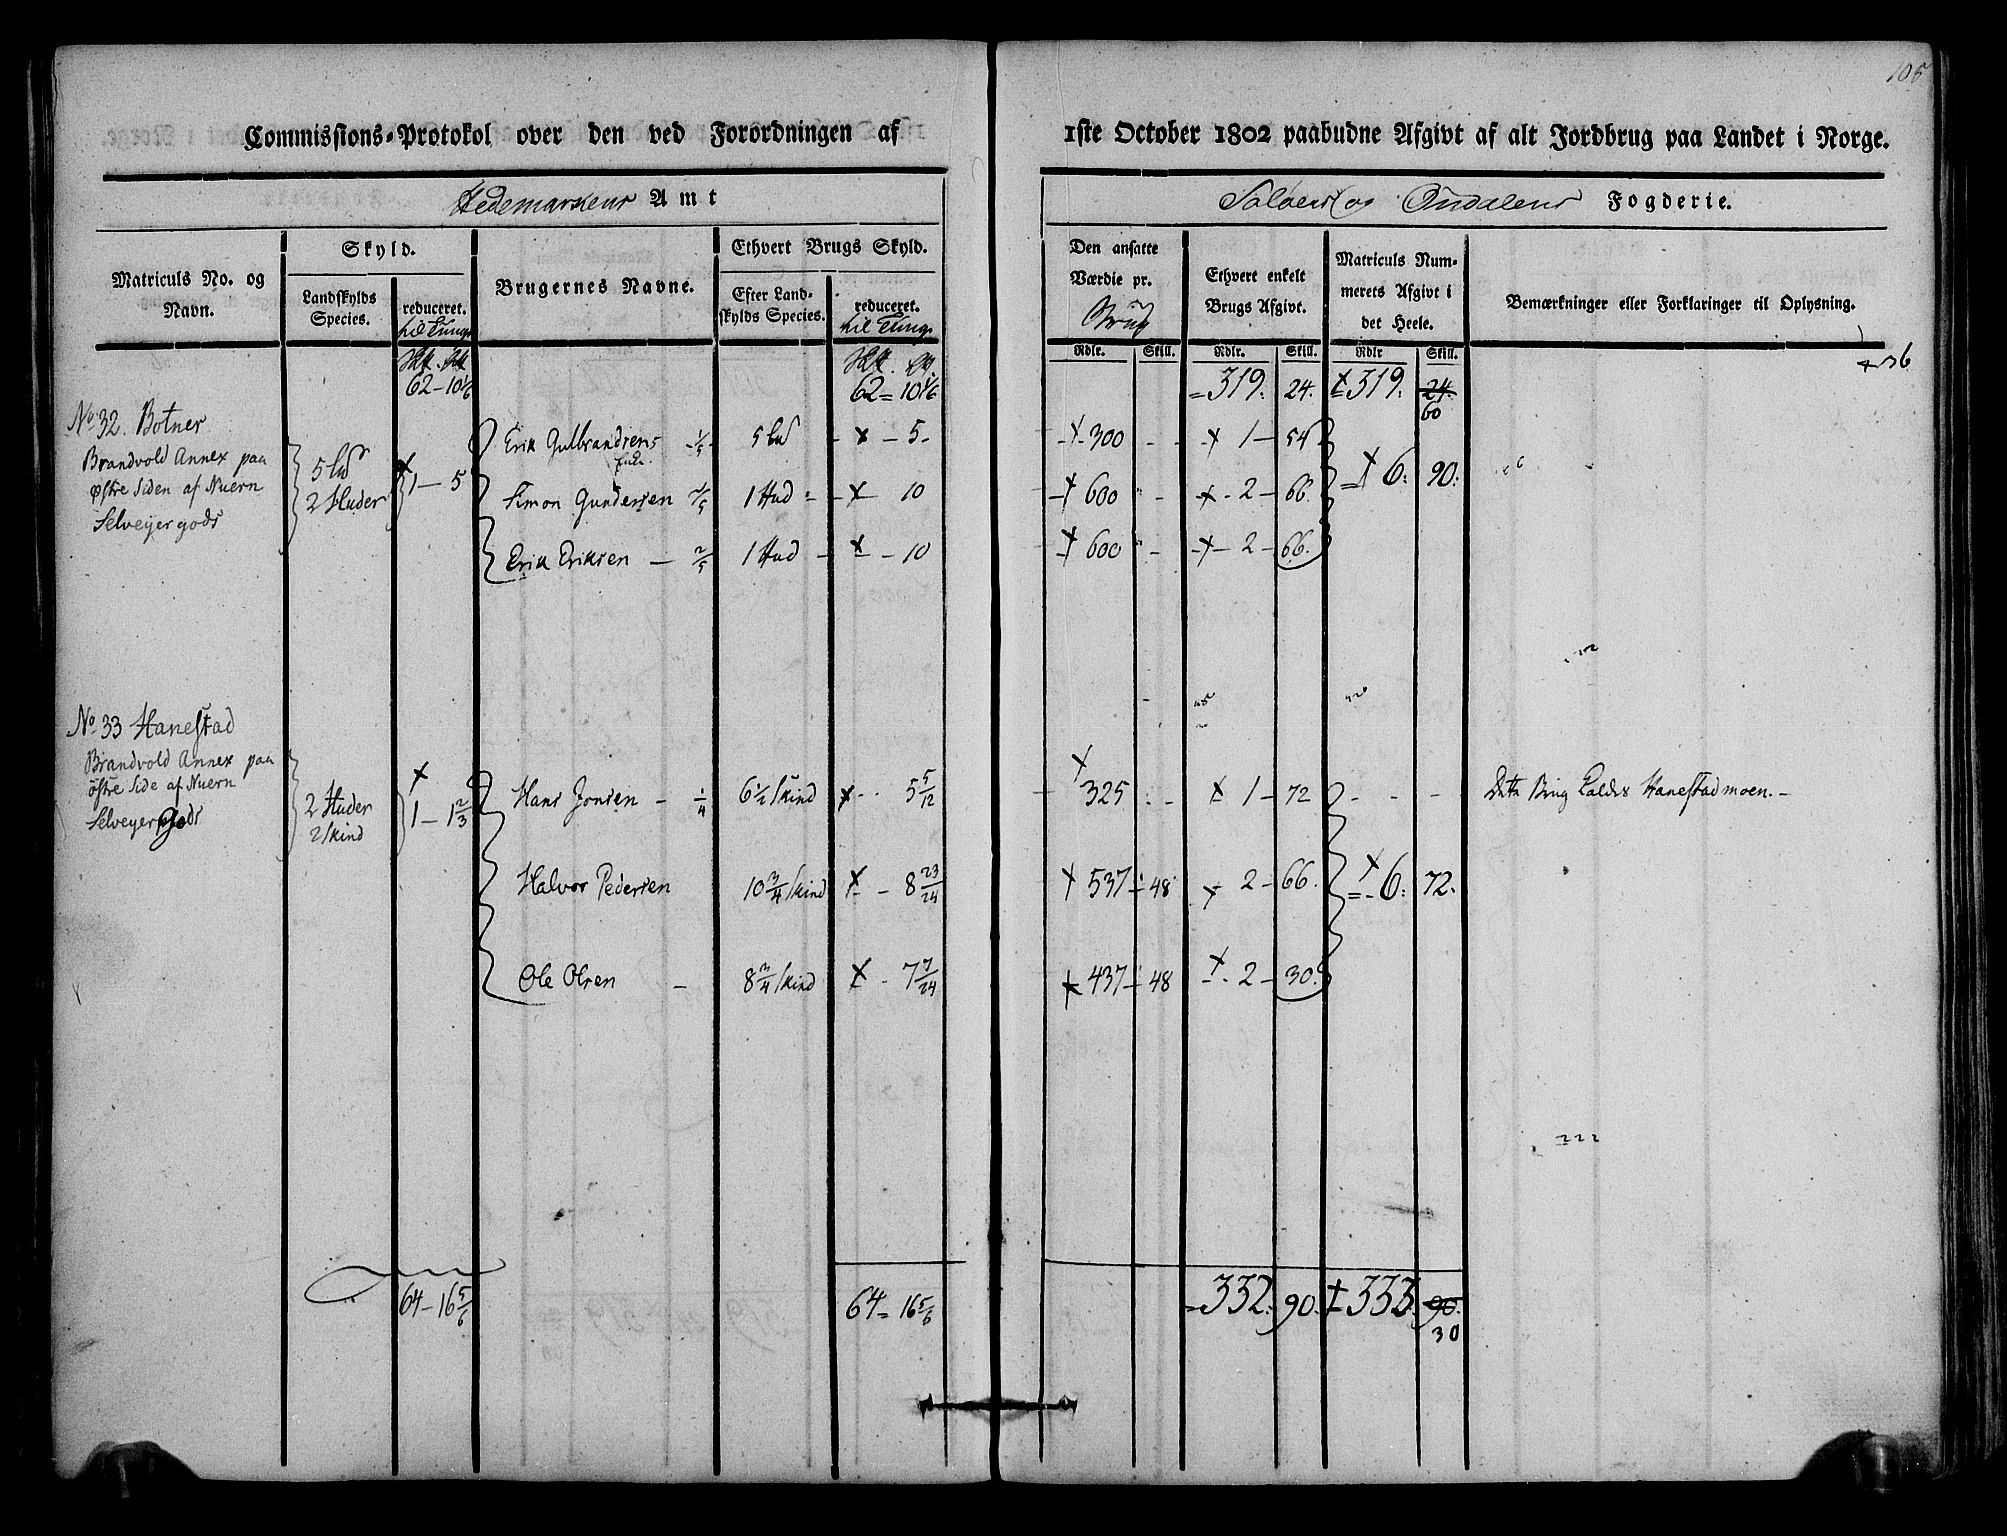 105
Commissions-Protokol over den ved Forordningen af 1ste October 1802 paabudne Afgivt af alt Jordbrug paa Landet i Norge.
Hedemarkens Amt
Soløers og Oudalens Fogderie.
Matriculs No. og Navn.
Skyld.
Landskylds Species.
reduceret.
til Tunge
Brugernes Navne.
Ethvert Brugs Skyld.
Efter Landskylds Species.
reduceret.
til Tunge
Den ansatte Værdie pr.
Brug
Ethvert enkelt Brugs Afgivt.
Matriculs Nummerets Afgivt i det Heele.
Bemærkninger eller Forklaringer til Oplysning.
Rdlr. Skill. Rdlr. Skill. Rdlr Skill.
62-10 1/6 62=10 1/6 =319: 24. 319: 24.
60
+36
No 32. Botner
Brandvold Annex paa
Østre Siden af Nuern
Selveyergods
2 Huder 1-5
Erik Gulbrandsens 1/5 5 - 5- 300 - - 1-54
Enke.
Simon Gundersen 2/5 1 Hud 10 600 - 2-66. 6: 90:
Erik Eriksen - 2/5 1 Hud - 10 600 - 2-66.
No 33 Hanestad
Brandvold Annex paa
østre Side af Nuern
Selveyergods
2 Huder
2 skind
1-1 2/3
Hans Jonsen - 1/4 6 1/2 skind 5 5/12 325 - 1-72 - - - Dete Brug kaldes Hanestadmoen.-
Halvor Pedersen 10 3/4 skind - 8 23/24 537-48 - 2-66. 6: 72.
Ole Olsen - 8 3/4 skind - 7 7/24 437-48 - 2-30.
64-16 5/6 64=16 5/6 =332. 90. 333. 90.
30